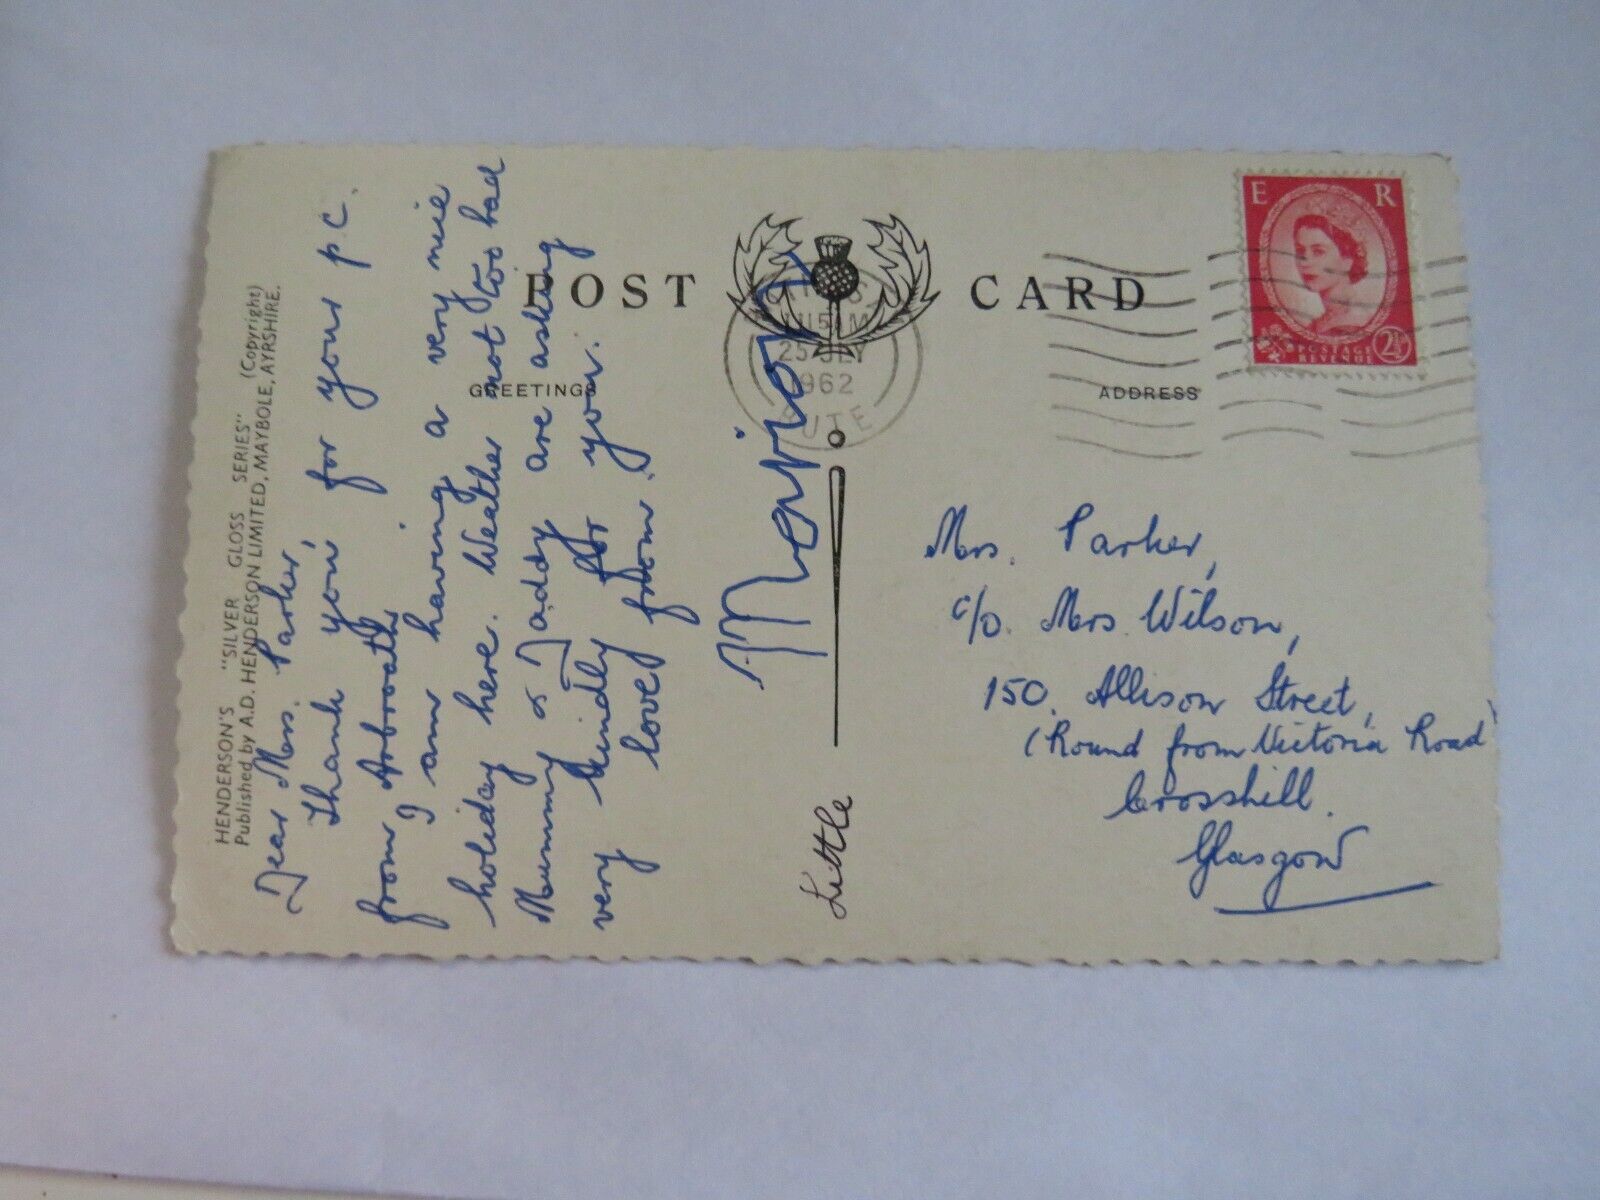 HENDERSON'S "SILVER GLOSS SERIES" (Copyright)
Published by A.D. HENDERSON LIMITED, MAYBOLE, AYRSHIRE.
Dear Mrs. Parker,
Thank you for your p.c.
from Arbroath.
I am having a very nice
holiday here. Weather not too bad
Mummy & Daddy are asking
very kindly for you.
love from.
Marion
POST CARD
GREETINGS
ADDRESS
1115 AM
25 JLY
1962
BUTE
E R
POSTAGE
REVENUE
2½D
Mrs. Parker,
c/o. Mrs. Wilson,
150, Allison Street,
(Round from Victoria Road)
Crosshill.
Glasgow
Little